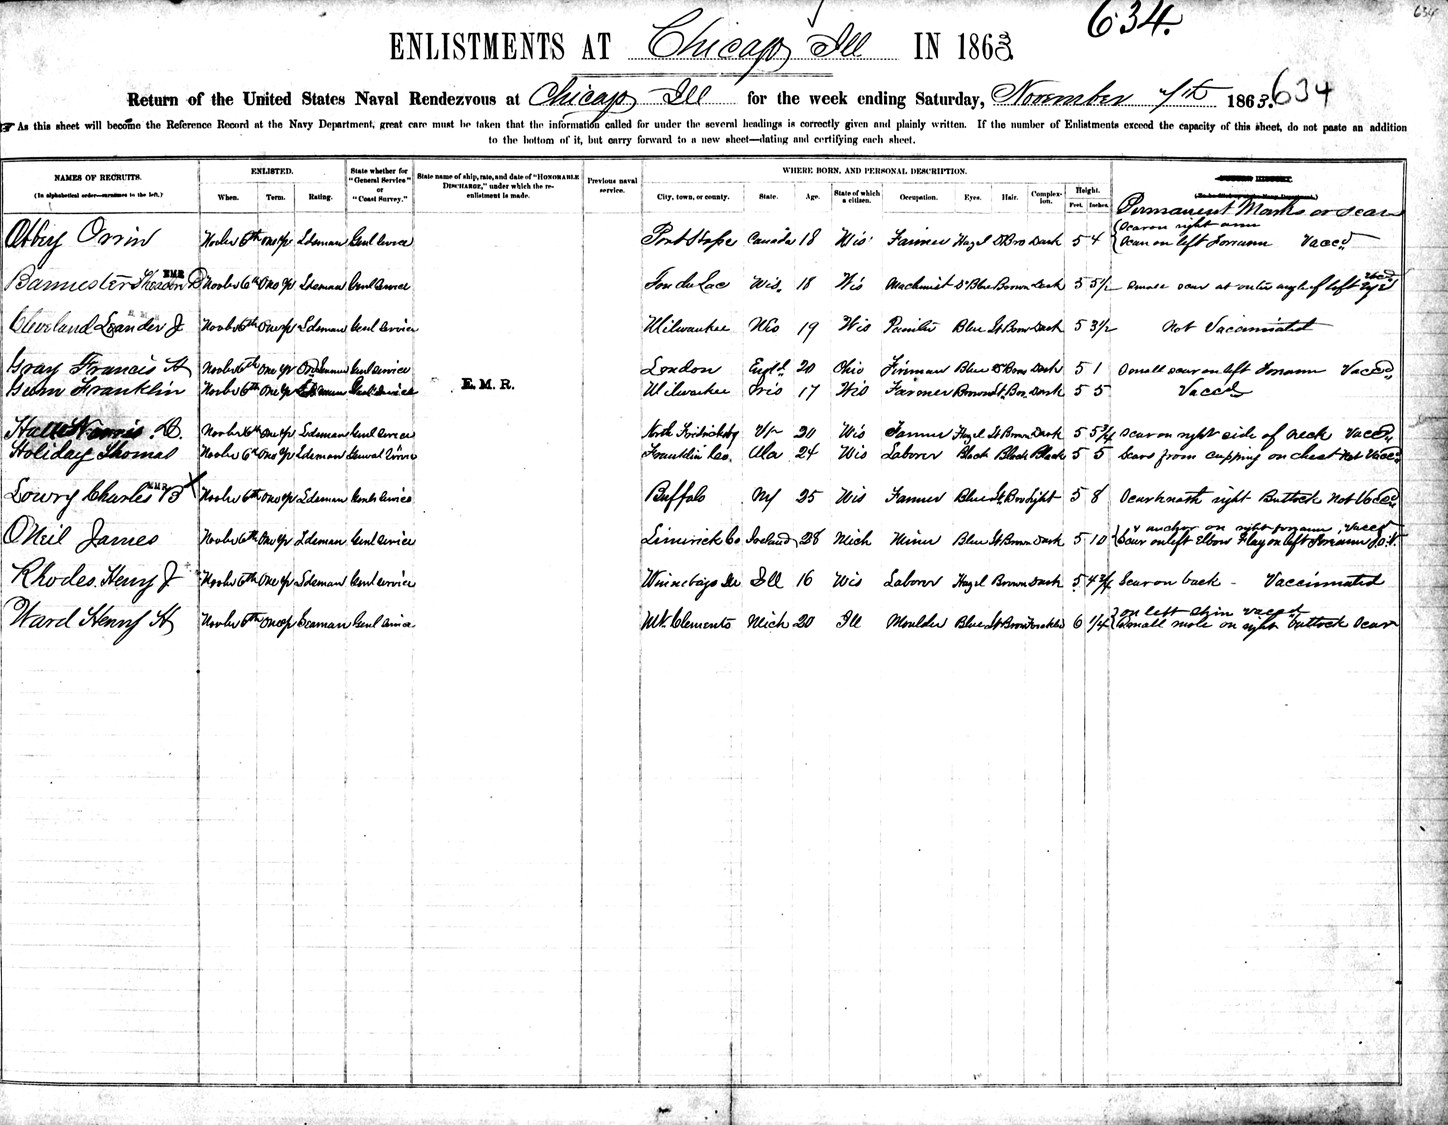 634.
634
ENLISTMENTS AT Chicago Ill IN 1863.
Return of the United States Naval Rendezvous at Chicago Ill for the week ending Saturday, November 7th 1863. 634
As this sheet will become the Reference Record at the Navy Department, great care must be taken that the information called for under the several headings is correctly given and plainly written. If the number of Enlistments exceed the capacity of this sheet, do not paste an addition
to the bottom of it, but carry forward to a new sheet—dating and certifying each sheet.
NAMES OF RECRUITS.
(In alphabetical order—surnames to the left.)
ENLISTED.
When. Term. Rating.
State whether for "General Service" or "Coast Survey."
State name of ship, rate, and date of "HONORABLE DISCHARGE," under which the re-enlistment is made.
Previous naval service.
WHERE BORN, AND PERSONAL DESCRIPTION.
City, town, or county. State. Age. State of which a citizen. Occupation. Eyes. Hair. Complexion. Height. Feet. Inches.
Permanent Marks or scars
Scar on right arm
Abbey Orrin Novbr 6th One yr Ldsman Genl Service Port Canada 18 Wis Farmer Hazel D Bro Dark 5 4 Scar on left forearm Vaccd
EMR Vaccd
Bannester Sheldon B Novbr 6th One yr Ldsman Genl Service Fon du Lac Wis. 18 Wis Machinist D Blue Brown Dark 5 5½ Small scar at outer angle of left Eye
E M R
Cleveland Leander J Novbr 6th One yr Ldsman Genl Service Milwaukee Wis 19 Wis Painter Blue Lt Brow Dark 5 3½ Not Vaccinated
Gray Francis A Novbr 6th One yr Genl Service London Engld. 20 Ohio Fireman Blue D Brow Dark 5 1 Small scar on left forearm Vaccd
Gunn Franklin Novbr 6th One yr Ldsman Genl Service E. M. R. Milwaukee Wis 17 Wis Farmer Brown Lt. Bro. Dark 5 5 Vaccd
Hall Norris D. Novbr 6th One yr Ldsman Genl Service North 20 Wis Farmer Hazel Lt Brown Dark 5 5¾ Scar on right side of neck Vaccd
Holiday Thomas Novbr 6th One yr Ldsman General Service Franklin Co. Ala 24 Wis Laborer Black Black Black 5 5 Scars from cupping on chest Not Vaccd
EMR
Lowry Charles B X Novbr 6th One yr Ldsman Genl Service Buffalo NY 25 Wis Farmer Blue Lt. Bro Light 5 8 Scar beneath right Buttock Not Vaccd
& anchor on right forearm, Vaccd
ONeil James Novbr 6th One yr Ldsman Genl Service Limerick Co Ireland 28 Mich Miner Blue Lt Brown Dark 5 10 Scar on left Elbow Flag on left forearm J.O.N.
Rhodes Henry J Novbr 6th One yr Ldsman Genl Service Winnebago Ill 16 Wis Laborer Hazel Brown Dark 5 4¾ Scar on back - Vaccinated
on left shin Vaccd
Ward Henry H Novbr 6th One yr Seaman Genl Service Mt. Clements Mich 20 Ill Moulder Blue Lt Brow Freckled 6 ¼ Small mole on right buttock Scar